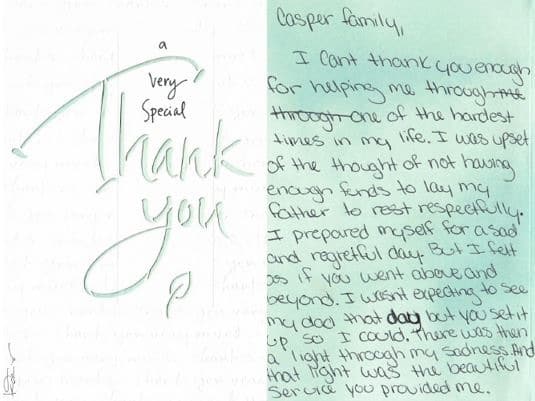 a
very
special
Thank
you
Casper family,
I Cant thank you enough
for helping me through the
through one of the hardest
times in my life. I was upset
of the thought of not having
enough funds to lay my
father to rest respectfully.
I prepared myself for a sad
and regretful day. But I felt
as if you went above and
beyond. I wasn't expecting to see
my dad that day but you set it
up so I could. There was then
a light through my sadness. And
that light was the beautiful
service you provided me.